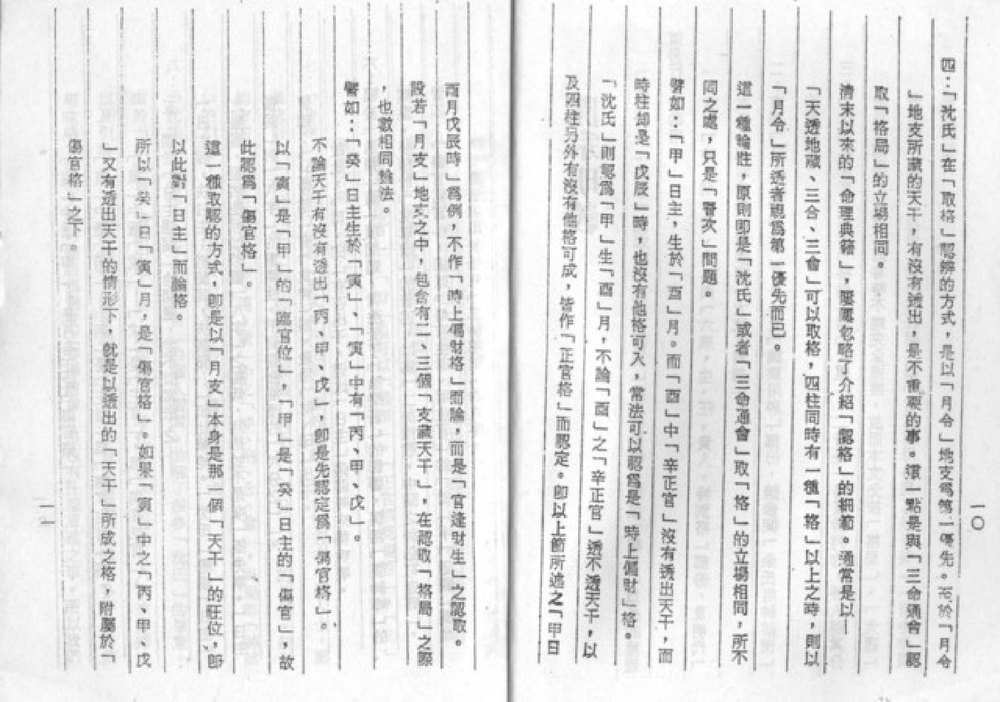 一〇
四：「沈氏」在「取格」認辨的方式，是以「月令」地支爲第一優先。至於「月令
」地支所藏的天干，有沒有透出，是不重要的事。這一點是與「三命通會」認
取「格局」的立場相同。
清末以來的「命理典籍」，屢屢忽略了介紹「認格」的細節。通常是以—
「天透地藏、三合、三會」可以取格，四柱同時有一種「格」以上之時，則以
「月令」所透者視爲第一優先而已。
這一種論性，原則卽是「沈氏」或者「三命通會」取「格」的立場相同，所不
同之處，只是「層次」問題。
譬如：「甲」日主，生於「酉」月。而「酉」中「辛正官」沒有透出天干，而
時柱却是「戊辰」時，也沒有他格可入，常法可以認爲是「時上偏財」格。
「沈氏」則認爲「甲」生「酉」月，不論「酉」之「辛正官」透不透天干，以
及四柱另外有沒有他格可成，皆作「正官格」而認定。卽以上節所述之「甲日
酉月戊辰時」爲例，不作「時上偏財格」而論，而是「官逢財生」之認取。
設若「月支」地支之中，包含有二、三個「支藏天干」，在認取「格局」之際
，也做相同論法。
譬如：「癸」日主生於「寅」、「寅」中有「丙、甲、戊」。
不論天干有沒有透出「丙、甲、戊」，卽是先認定爲「傷官格」。
以「寅」是「甲」的「臨官位」，「甲」是「癸」日主的「傷官」，故
此認爲「傷官格」。
這一種取認的方式，卽是以「月支」本身是那一個「天干」的旺位，卽
以此對「日主」而論格。
所以「癸」日「寅」月，是「傷官格」。如果「寅」中之「丙、甲、戊
」又有透出天干的情形下，就是以透出的「天干」所成之格，附屬於「
傷官格」之下。
一一